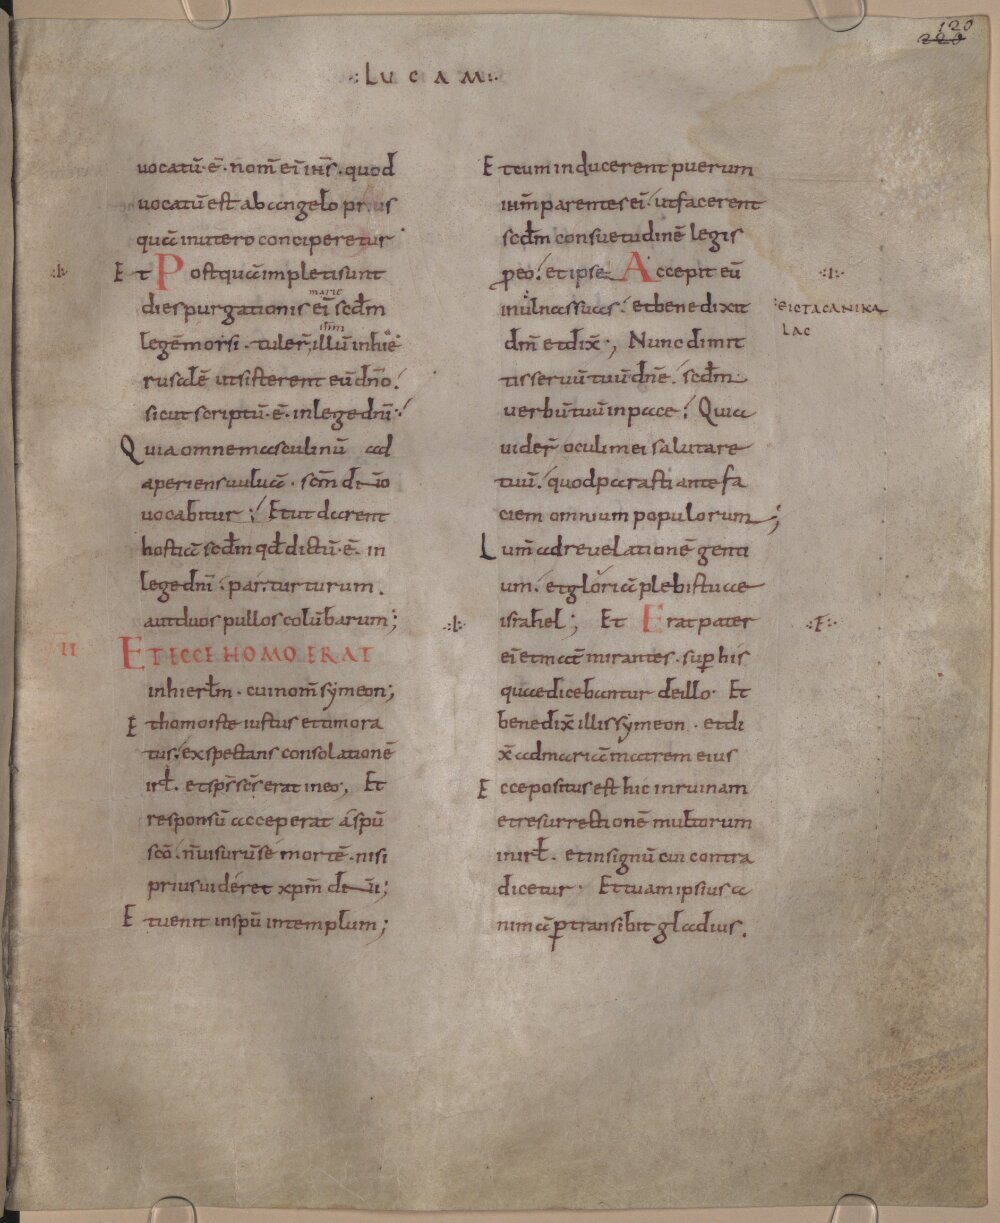 120
220
·: LUCAM :·
uocatū·ē· nom̄ eī ih̄s· quod
uocatū est ab angelo prius
quā inutero conciperetur
·:I:· Et Postquā impleti sunt
marie
dies purgationis eī scd̄m
illum
legē morsi· tuler̄ illū inhie
rusalē ut sisterent eū dn̄o·
sicut scriptū·ē· inlege dn̄i·
Quia omne masculinū ad
aperiens uuluā· scm̄ dn̄o
uocabitur; Et ut darent
hostiā scd̄m qd̄ dictū·ē· in
lege dn̄i· par turturum·
aut duos pullos colūbarum;
II ET ECCE HOMO ERAT
inhierłm· cui nom̄ symeon;
Et homo iste iustus et timora
tus· exspectans consolationē
irł· et sp̄s sc̄s erat in eo; Et
responsū acceperat a sp̄u
sc̄o· n̄ uisurū se mortē· nisi
prius uideret xp̄m dn̄i;
Et uenit in sp̄u in templum;
Et cum inducerent puerum
ih̄m parentes eī· ut facerent
scd̄m consuetudinē legis
p eo· et ipse Accepit eū ·:I:·
in ulnas suas· et benedixit
EICTACANIKA
LAC
dm̄ et dix̄·; Nunc dimit
tis seruū tuū dn̄e· scd̄m
uerbū tuū in pace· Quia
uider̄ oculi mei salutare
tuū· quod parasti ante fa
ciem omnium populorum;
Lum̄ ad reuelationē genti
um· et gloriā plebis tuae
·:I:· israhel; Et Erat pater ·:F:·
eī et mat̄ mirantes· sup his
quae dicebantur de illo· Et
benedix̄ illis symeon· et di
x̄ ad mariā matrem eius
Ecce positus est hic in ruinam
et resurrectionē multorum
in irł· et in signū cui contra
dicetur· Et tuam ipsius a
nimā ptransibit gladius·